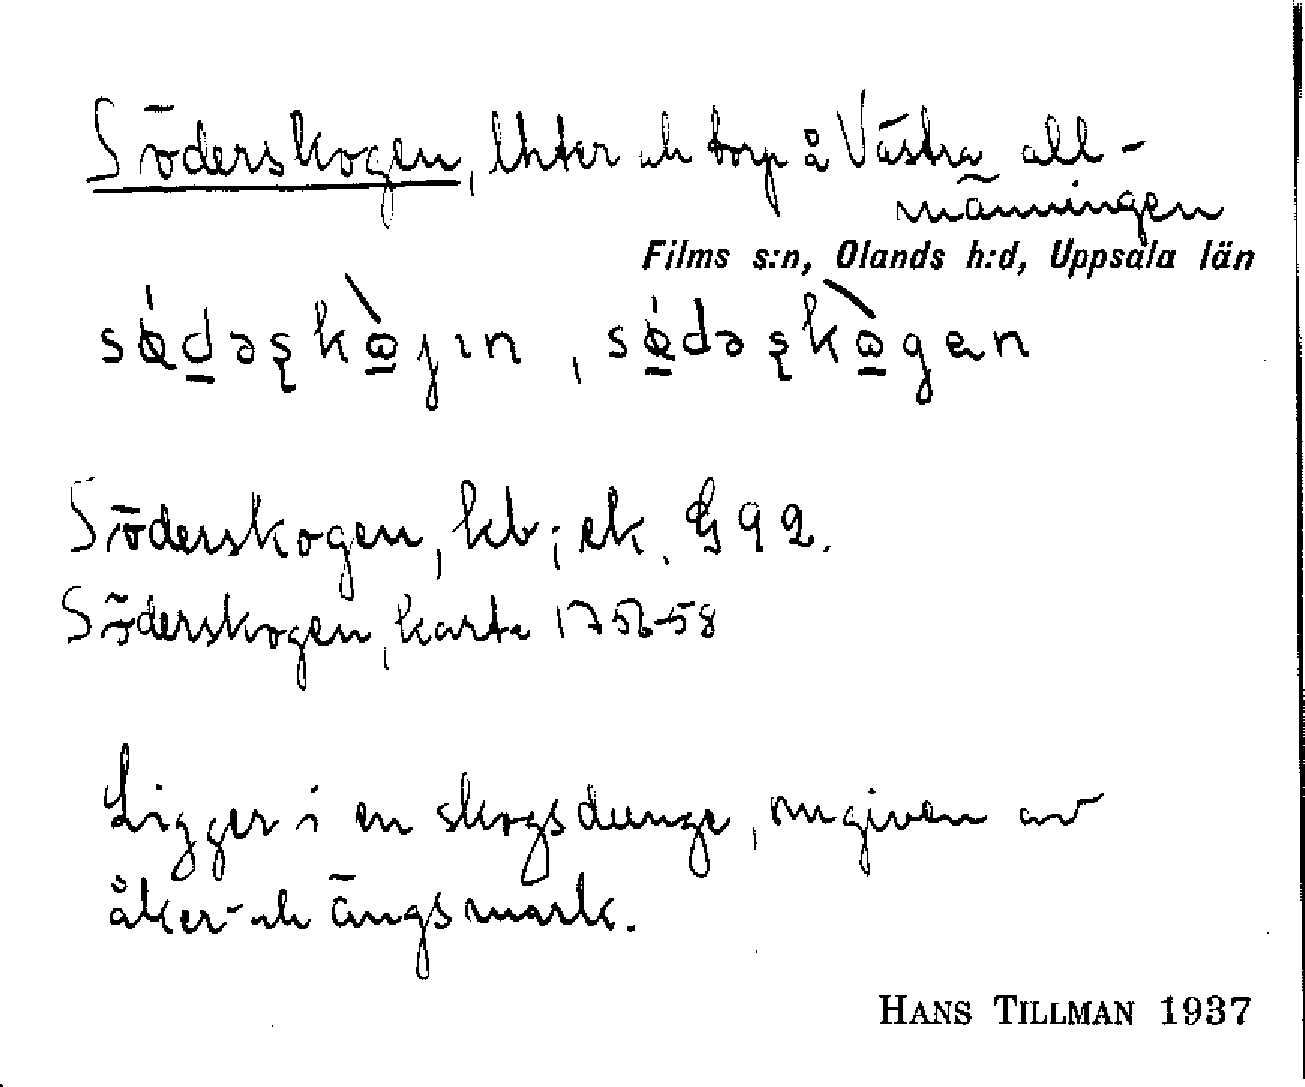 Söderskogen, lht:er och torp å Västra all-
männingen
Films s:n, Olands h:d, Uppsala län
Söderskogen, kb; ek. G 92.
Söderskogen, karta 1756-58
Ligger i en skogsdunge, omgiven av
åker- och ängsmark.
HANS TILLMAN 1937